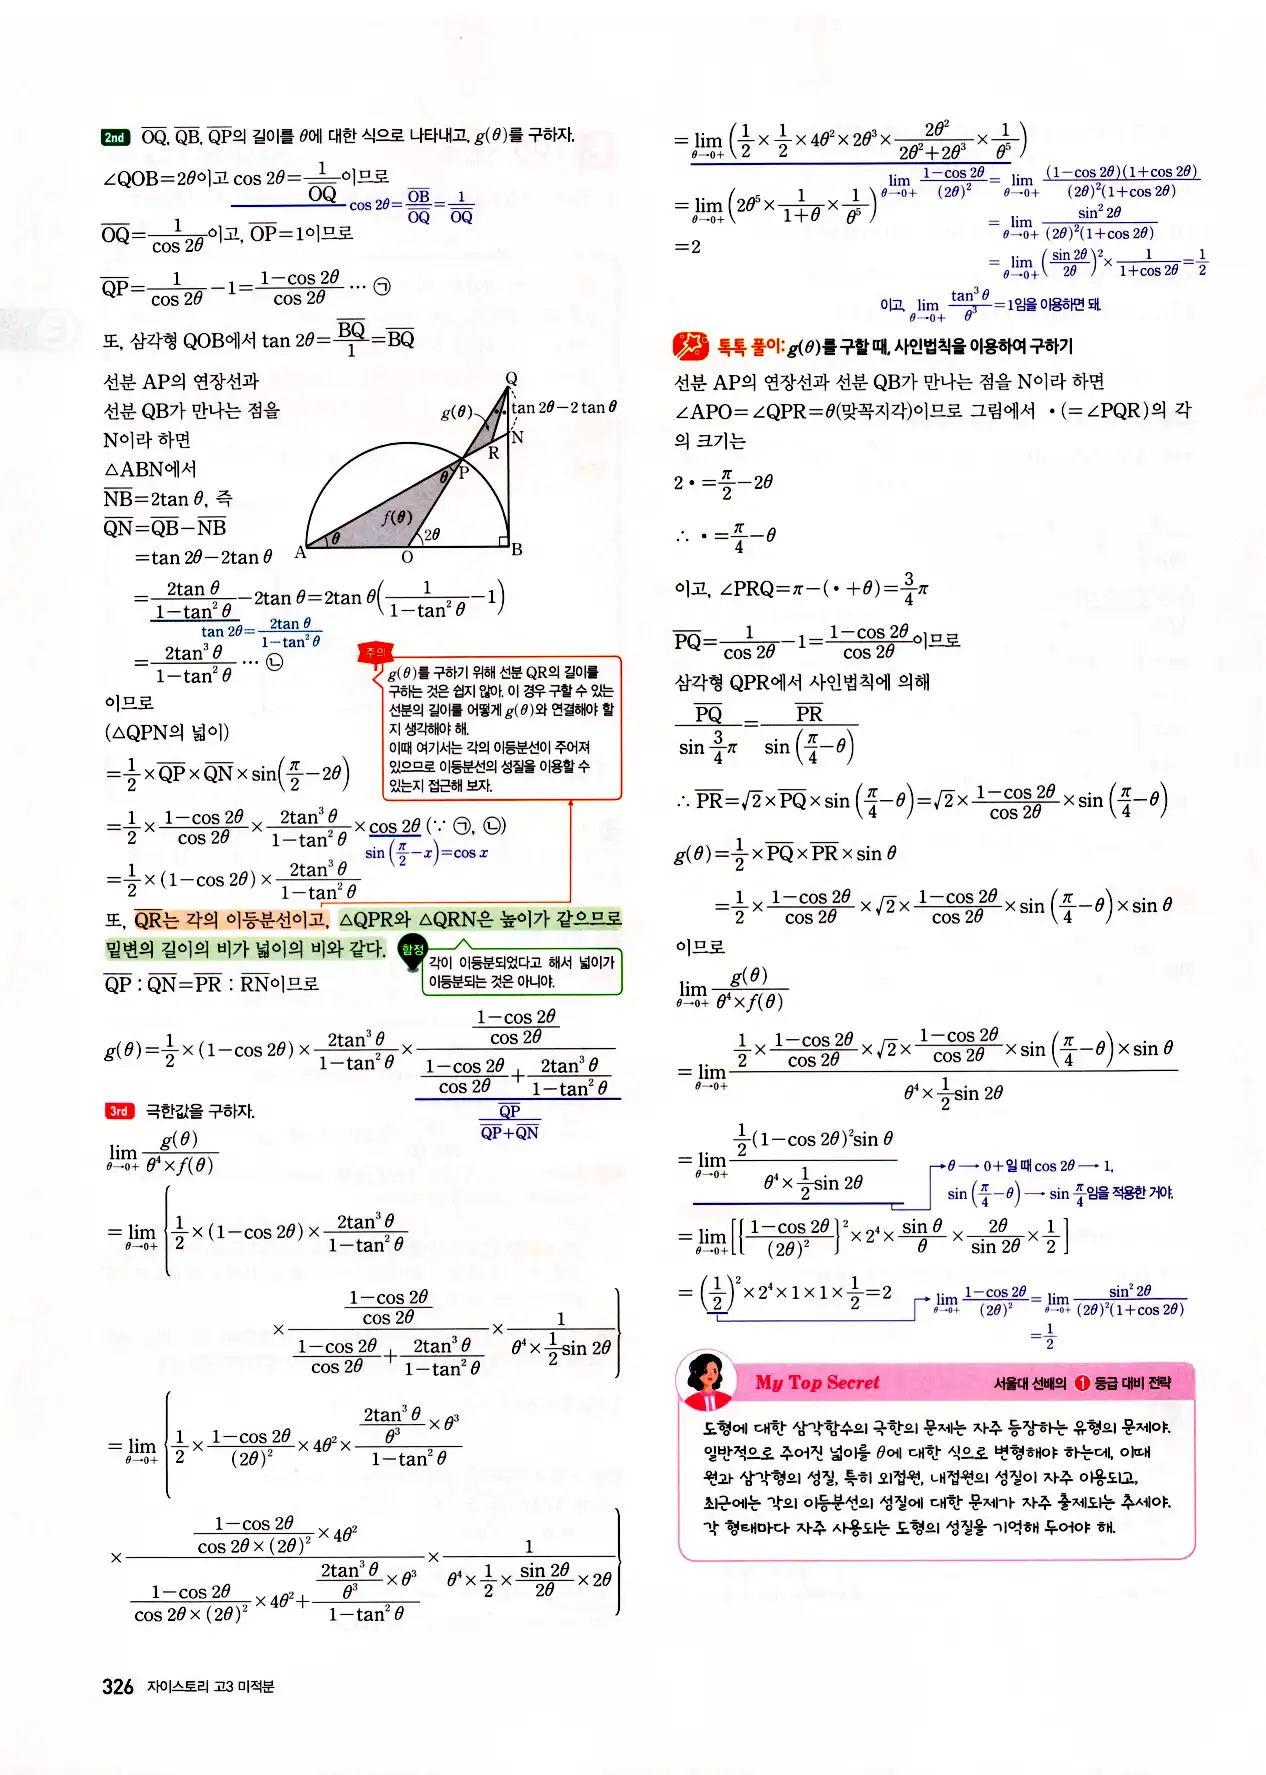 2nd OQ, QB, QP의 길이를 θ에 대한 식으로 나타내고, g(θ)를 구하자.
∠QOB=2θ이고 cos 2θ=1/OQ이므로
cos 2θ=OB/OQ=1/OQ
OQ=1/cos 2θ이고, OP=1이므로
QP=1/cos 2θ−1=(1−cos 2θ)/cos 2θ ⋯ ㉠
또, 삼각형 QOB에서 tan 2θ=BQ/1=BQ
선분 AP의 연장선과
선분 QB가 만나는 점을
N이라 하면
△ABN에서
NB=2tan θ, 즉
QN=QB−NB
=tan 2θ−2tan θ
Q
g(θ)
tan 2θ−2 tan θ
N
R
θ
P
f(θ)
θ
2θ
A
O
B
=2tan θ/(1−tan²θ)−2tan θ=2tan θ(1/(1−tan²θ)−1)
tan 2θ=2tan θ/(1−tan²θ)
=2tan³θ/(1−tan²θ) ⋯ ㉡
이므로
(△QPN의 넓이)
=1/2×QP×QN×sin(π/2−2θ)
=1/2×(1−cos 2θ)/cos 2θ×2tan³θ/(1−tan²θ)×cos 2θ (∵ ㉠, ㉡)
sin(π/2−x)=cos x
=1/2×(1−cos 2θ)×2tan³θ/(1−tan²θ)
주의
g(θ)를 구하기 위해 선분 QR의 길이를
구하는 것은 쉽지 않아. 이 경우 구할 수 있는
선분의 길이를 어떻게 g(θ)와 연결해야 할
지 생각해야 해.
이때 여기서는 각의 이등분선이 주어져
있으므로 이등분선의 성질을 이용할 수
있는지 접근해 보자.
또, QR는 각의 이등분선이고, △QPR와 △QRN은 높이가 같으므로
밑변의 길이의 비가 넓이의 비와 같다.
함정
각이 이등분되었다고 해서 넓이가
이등분되는 것은 아니야.
QP : QN=PR : RN이므로
g(θ)=1/2×(1−cos 2θ)×2tan³θ/(1−tan²θ)×((1−cos 2θ)/cos 2θ)/((1−cos 2θ)/cos 2θ+2tan³θ/(1−tan²θ))
QP/(QP+QN)
3rd 극한값을 구하자.
lim θ→0+ g(θ)/(θ⁴×f(θ))
=lim θ→0+ {1/2×(1−cos 2θ)×2tan³θ/(1−tan²θ)
×((1−cos 2θ)/cos 2θ)/((1−cos 2θ)/cos 2θ+2tan³θ/(1−tan²θ))×1/(θ⁴×1/2 sin 2θ)}
=lim θ→0+ {1/2×(1−cos 2θ)/(2θ)²×4θ²×(2tan³θ/θ³×θ³)/(1−tan²θ)
×((1−cos 2θ)/(cos 2θ×(2θ)²)×4θ²)/((1−cos 2θ)/(cos 2θ×(2θ)²)×4θ²+(2tan³θ/θ³×θ³)/(1−tan²θ))×1/(θ⁴×1/2×sin 2θ/2θ×2θ)}
=lim θ→0+ (1/2×1/2×4θ²×2θ³×2θ²/(2θ²+2θ³)×1/θ⁵)
=lim θ→0+ (2θ⁵×1/(1+θ)×1/θ⁵)
=2
lim θ→0+ (1−cos 2θ)/(2θ)²=lim θ→0+ (1−cos 2θ)(1+cos 2θ)/((2θ)²(1+cos 2θ))
=lim θ→0+ sin²2θ/((2θ)²(1+cos 2θ))
=lim θ→0+ (sin 2θ/2θ)²×1/(1+cos 2θ)=1/2
이고, lim θ→0+ tan³θ/θ³=1임을 이용하면 돼.
톡톡 풀이: g(θ)를 구할 때, 사인법칙을 이용하여 구하기
선분 AP의 연장선과 선분 QB가 만나는 점을 N이라 하면
∠APO=∠QPR=θ(맞꼭지각)이므로 그림에서 •(=∠PQR)의 각
의 크기는
2•=π/2−2θ
∴ •=π/4−θ
이고, ∠PRQ=π−(•+θ)=3/4π
PQ=1/cos 2θ−1=(1−cos 2θ)/cos 2θ이므로
삼각형 QPR에서 사인법칙에 의해
PQ/sin 3/4π=PR/sin(π/4−θ)
∴ PR=√2×PQ×sin(π/4−θ)=√2×(1−cos 2θ)/cos 2θ×sin(π/4−θ)
g(θ)=1/2×PQ×PR×sin θ
=1/2×(1−cos 2θ)/cos 2θ×√2×(1−cos 2θ)/cos 2θ×sin(π/4−θ)×sin θ
이므로
lim θ→0+ g(θ)/(θ⁴×f(θ))
=lim θ→0+ (1/2×(1−cos 2θ)/cos 2θ×√2×(1−cos 2θ)/cos 2θ×sin(π/4−θ)×sin θ)/(θ⁴×1/2 sin 2θ)
=lim θ→0+ (1/2(1−cos 2θ)²sin θ)/(θ⁴×1/2 sin 2θ)
θ→0+일 때 cos 2θ→1,
sin(π/4−θ)→sin π/4임을 적용한 거야.
=lim θ→0+ [{(1−cos 2θ)/(2θ)²}²×2⁴×sin θ/θ×2θ/sin 2θ×1/2]
=(1/2)²×2⁴×1×1×1/2=2
lim θ→0+ (1−cos 2θ)/(2θ)²=lim θ→0+ sin²2θ/((2θ)²(1+cos 2θ))
=1/2
My Top Secret
서울대 선배의 1등급 대비 전략
도형에 대한 삼각함수의 극한의 문제는 자주 등장하는 유형의 문제야.
일반적으로 주어진 넓이를 θ에 대한 식으로 변형해야 하는데, 이때
원과 삼각형의 성질, 특히 외접원, 내접원의 성질이 자주 이용되고,
최근에는 각의 이등분선의 성질에 대한 문제가 자주 출제되는 추세야.
각 형태마다 자주 사용되는 도형의 성질을 기억해 두어야 해.
326 자이스토리 고3 미적분